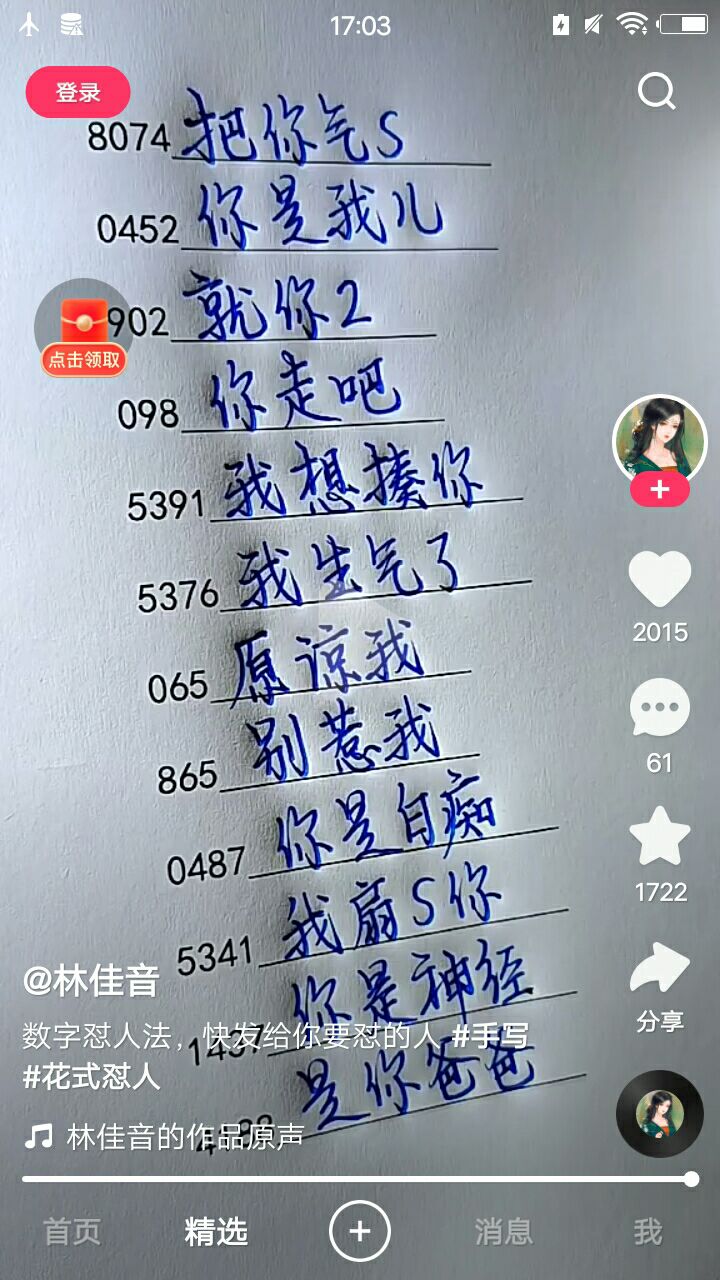 17:03
登录
8074 把你气S
0452 你是我儿
902 就你2
点击领取
098 你走吧
5391 我想揍你
5376 我生气了
2015
065 原谅我
别惹我
865
61
0487 你是白痴
1722
5341 我扇S你
@林佳音
你是神经
分享
数字怼人法，快发给你要怼的人 #手写
#花式怼人
是你爸爸
林佳音的作品原声
首页 精选 消息 我